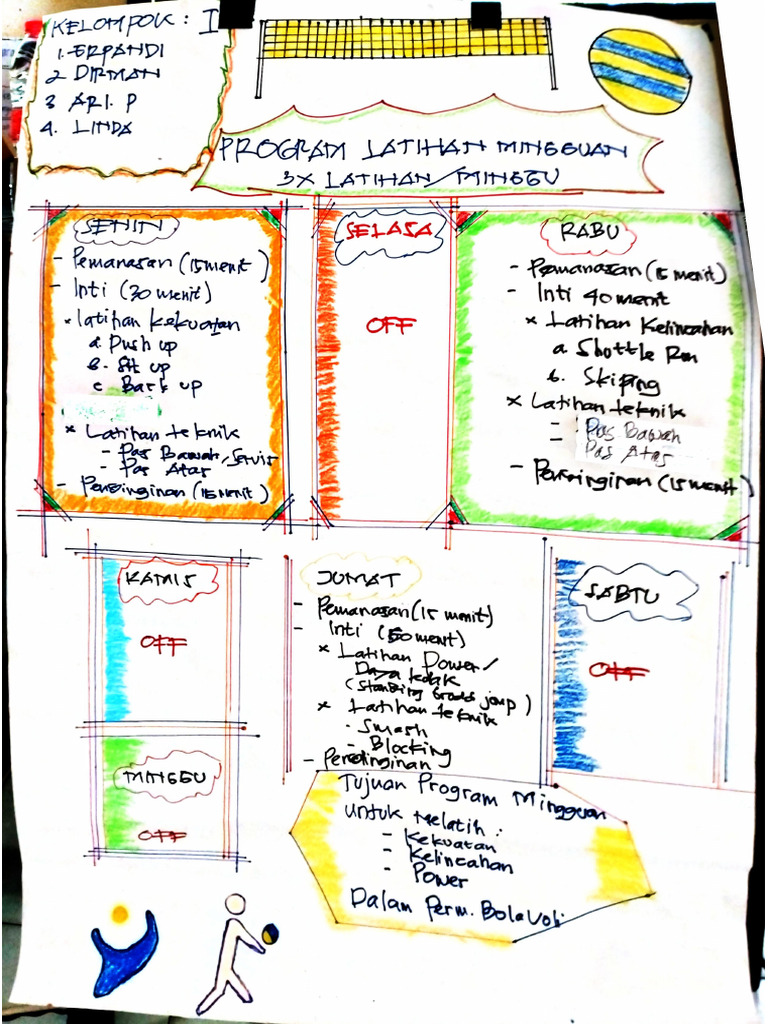 KELOMPOK : I
1. ERPANDI
2 DIRMAN
3 ARI. P
4. LINDA
PROGRAM LATIHAN MINGGUAN
3X LATIHAN/MINGGU
SENIN
- Pemanasan (15 menit)
- Inti (30 menit)
* latihan kekuatan
a. Push up
b. Sit up
c. Back up
* Latihan teknik
- Pas Bawah/Servis
- Pas Atas
- Pendinginan (15 menit)
SELASA
OFF
RABU
- Pemanasan (15 menit)
- Inti 40 menit
* Latihan Kelincahan
a. Shottle Run
b. Skiping
* Latihan teknik
- Pas Bawah
- Pas Atas
- Pendinginan (15 menit)
KAMIS
OFF
JUMAT
- Pemanasan (15 menit)
- Inti (50 menit)
* Latihan Power/
Daya ledak
(Standing broad jump)
* Latihan teknik
- Smash
- Blocking
- Pendinginan
SABTU
OFF
MINGGU
OFF
Tujuan Program Mingguan
untuk Melatih :
- Kekuatan
- Kelincahan
- Power
Dalam Perm. Bola Voli